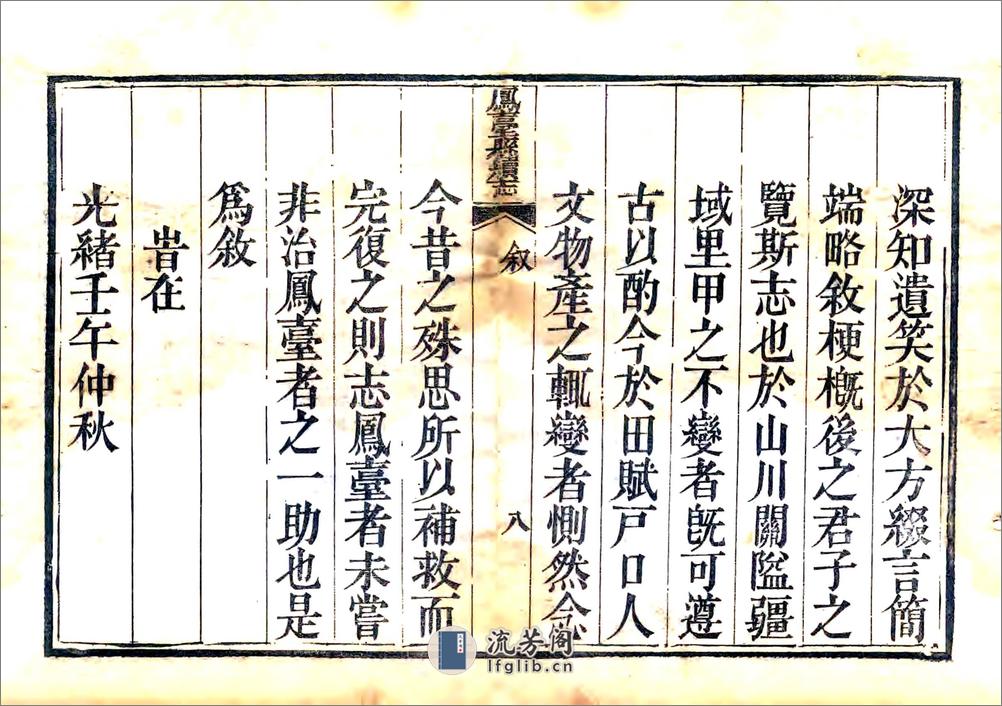 深知遺笑於大方綴言簡
端略敘梗槪後之君子之
覽斯志也於山川關隘疆
域里甲之不變者旣可遵
古以酌今於田賦戸口人
文物產之輒變者惻然念
鳳臺縣續志
叙
八
今昔之殊思所以補救而
完復之則志鳳臺者未嘗
非治鳳臺者之一助也是
爲敘
旹在
光緒壬午仲秋
流芳阁
lfglib.cn